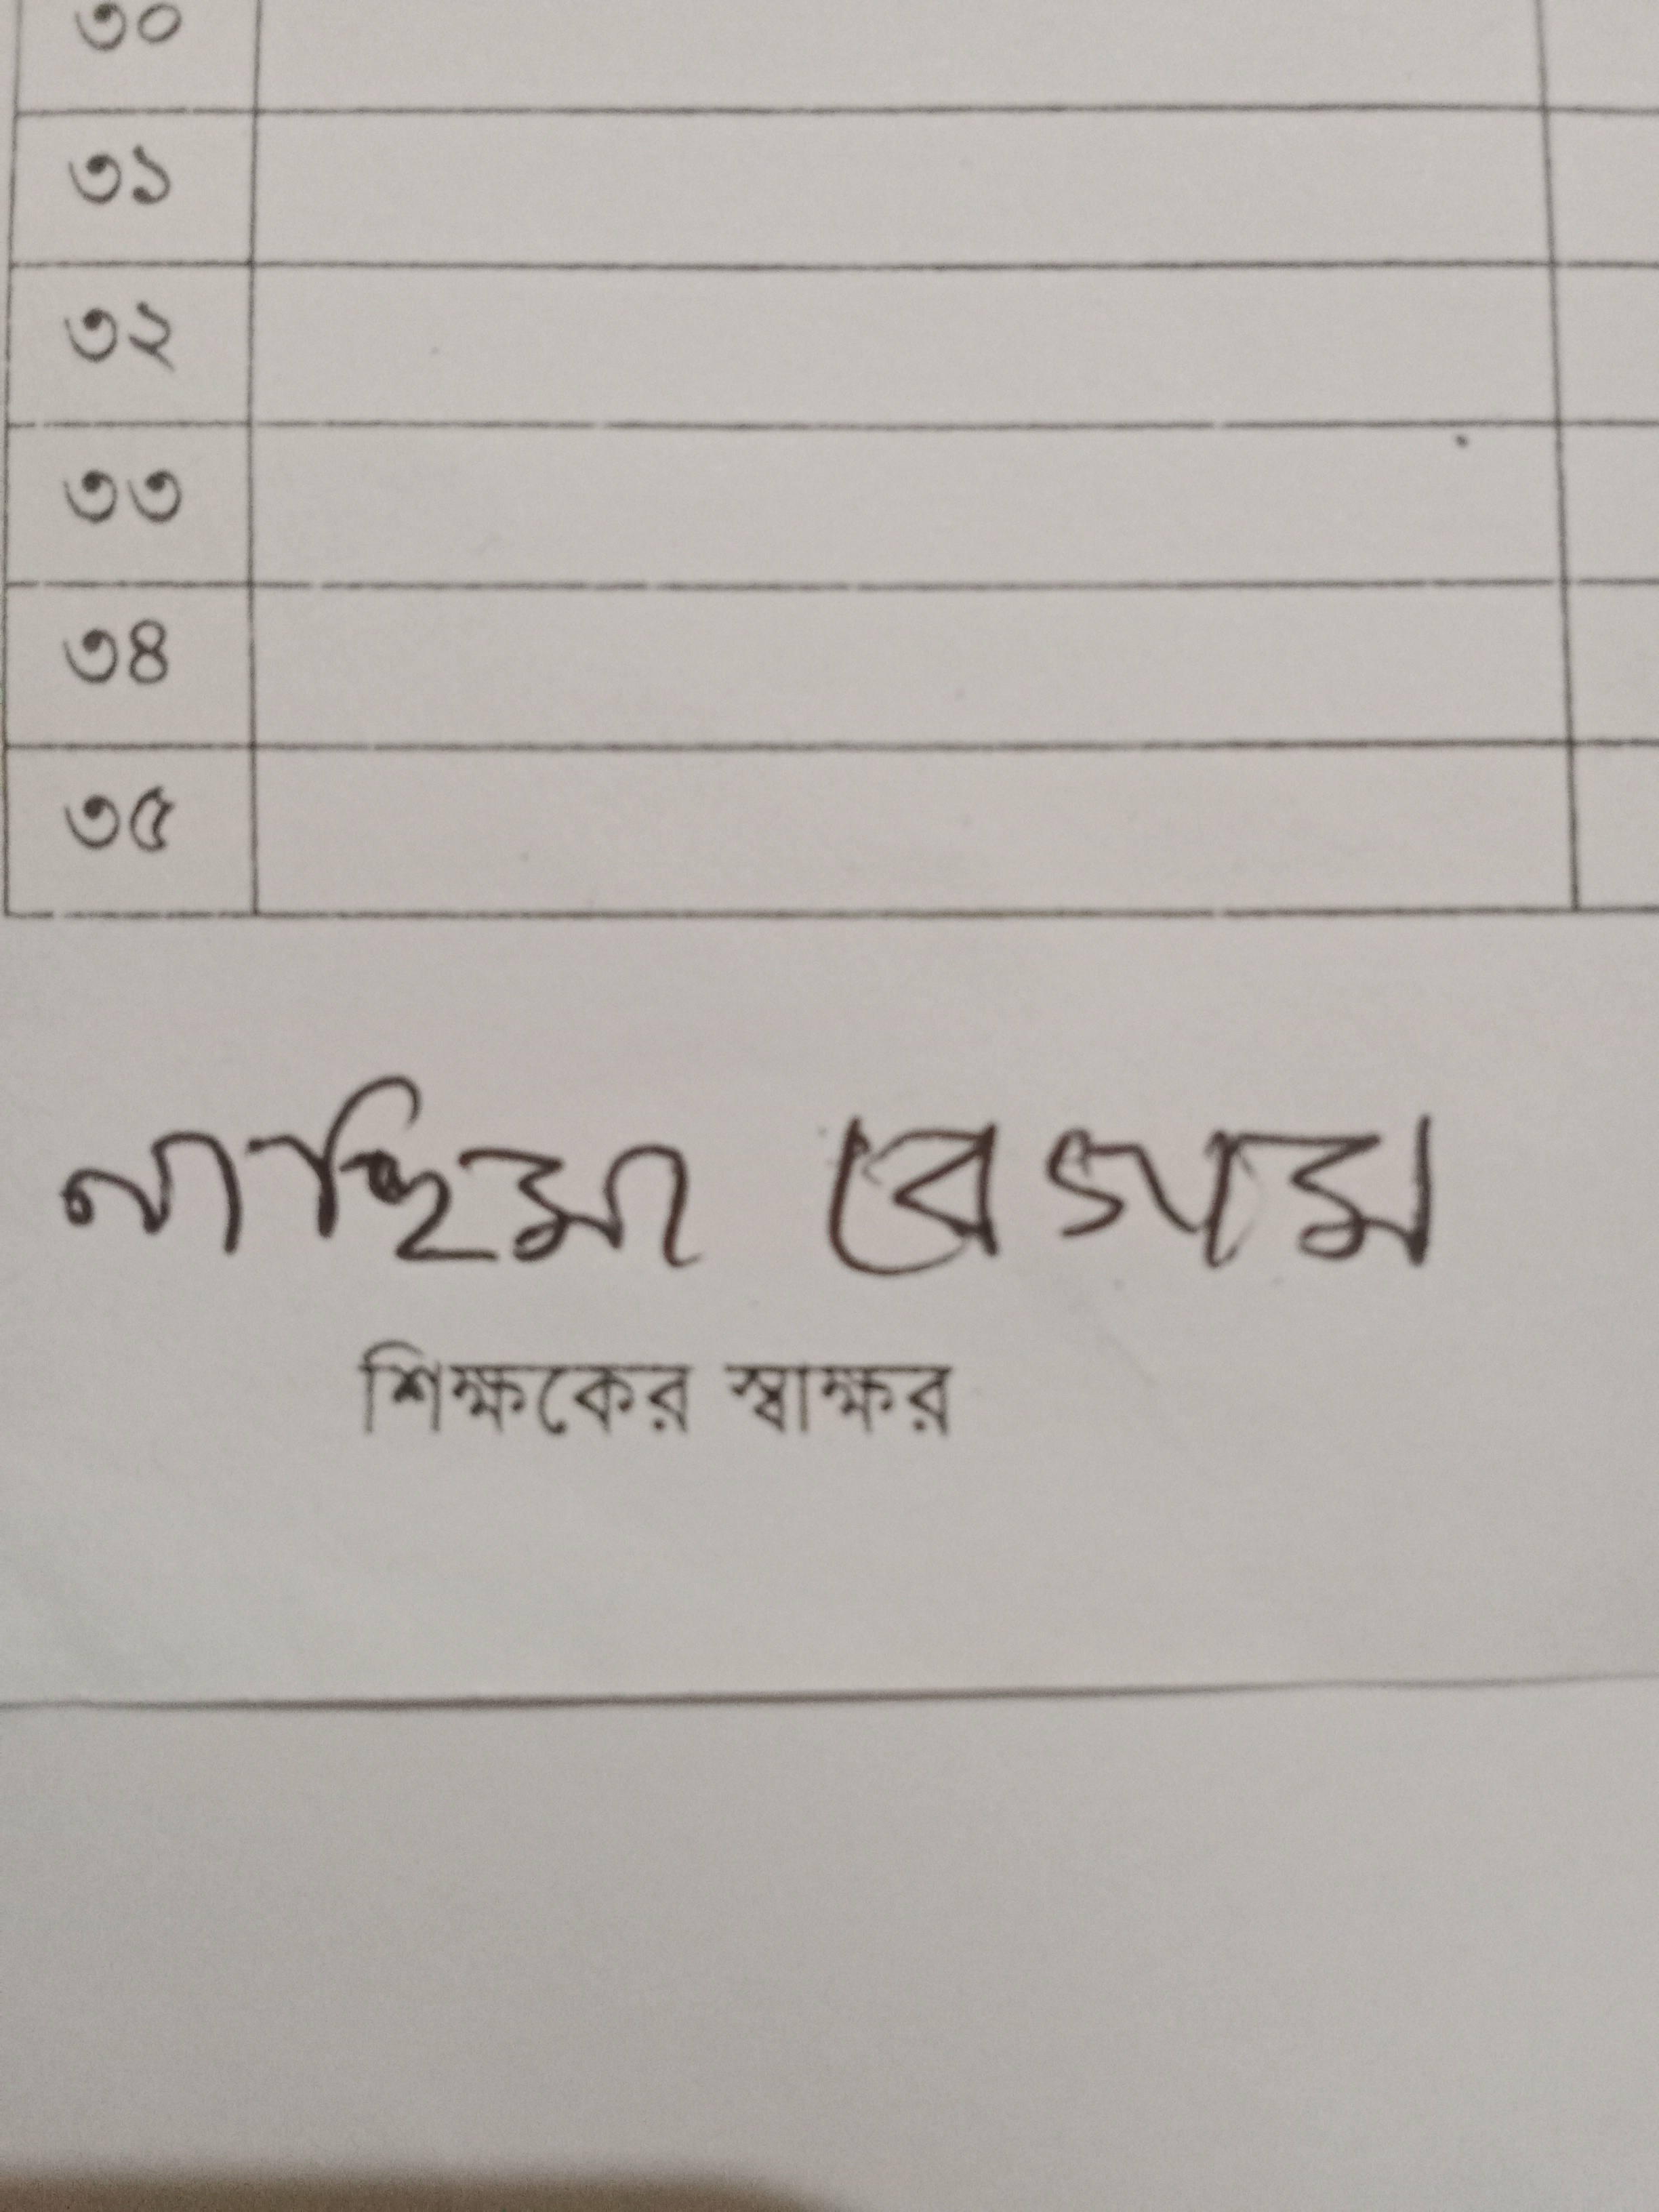 ৩০
৩১
৩২
৩৩
৩৪
৩৫
নাছিমা বেগম
শিক্ষকের স্বাক্ষর